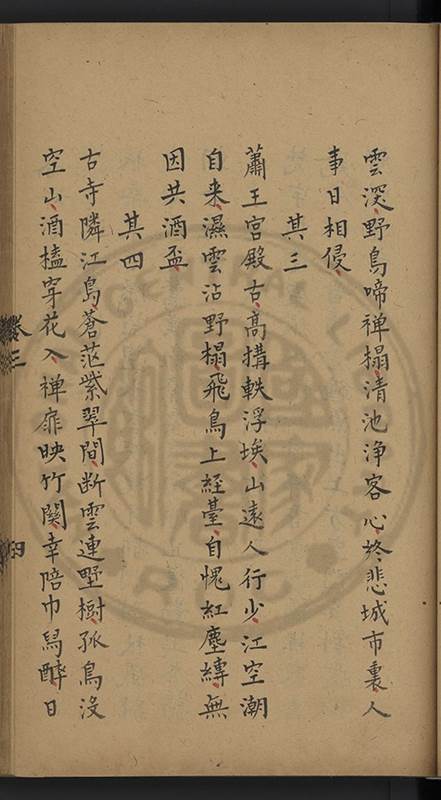 雲深野鳥啼禅榻清池浄客心終悲城市裏人
事日相侵
其三
蕭王宮殿古高搆軼浮埃山遠人行少江空潮
自来濕雲沾野榻飛鳥上經臺自愧紅塵縛無
因共酒盃
其四
古寺隣江島蒼茫紫翠間断雲連墅樹孤鳥没
空山酒榼穿花入禅扉映竹関幸陪巾舄酔日
卷三